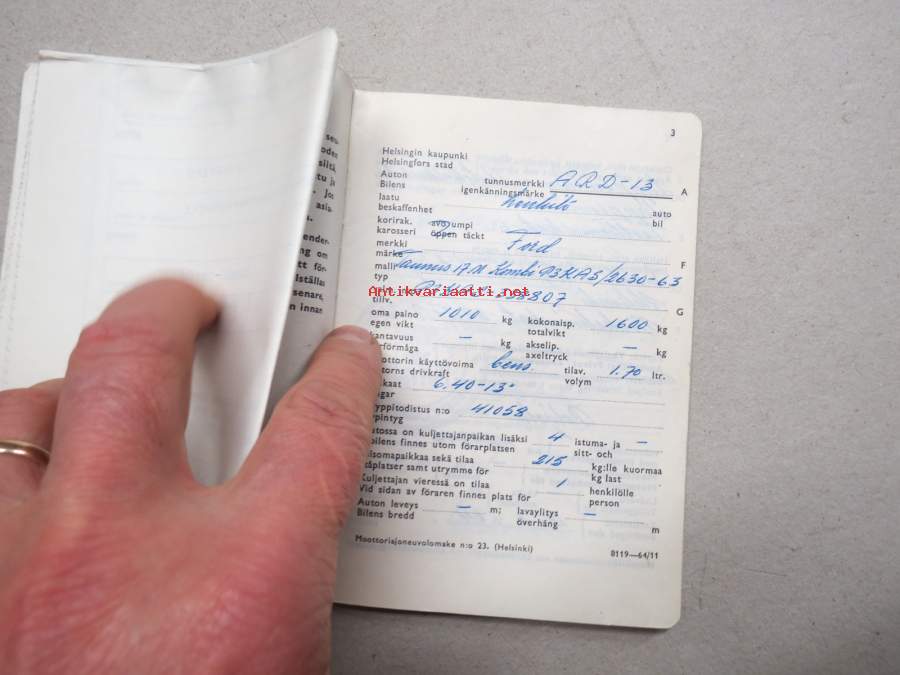 seu-
oden
siitä,
tu ja
Jos
asia-
ender-
ng om
tt för-
llställas
senare,
n innan
3
Helsingin kaupunki
Helsingfors stad
Auton tunnusmerkki ARD-13 A
Bilens igenkänningsmärke
laatu auto
beskaffenhet bil
korirak. avo umpi
karosseri öppen täckt
merkki Ford F
märke
malli Taunus 17M Kombi P3KA5/2630-63
typ
Antikvariaatti.net
tillv. G
oma paino 1010 kg kokonaisp. 1600 kg
egen vikt totalvikt
kantavuus — kg akselip. — kg
ärförmåga axeltryck
oottorin käyttövoima bens. tilav. 1.70 ltr.
torns drivkraft volym
kaat 6.40-13"
gar
yppitodistus n:o 41058
pintyg
utossa on kuljettajanpaikan lisäksi 4 istuma- ja —
bilens finnes utom förarplatsen sitt- och
isomapaikkaa sekä tilaa 215 kg:lle kuormaa
tåplatser samt utrymme för kg last
Kuljettajan vieressä on tilaa 1 henkilölle
Vid sidan av föraren finnes plats för person
Auton leveys — m; lavaylitys — m
Bilens bredd överhäng
Moottoriajoneuvolomake n:o 23. (Helsinki) 8119—64/11